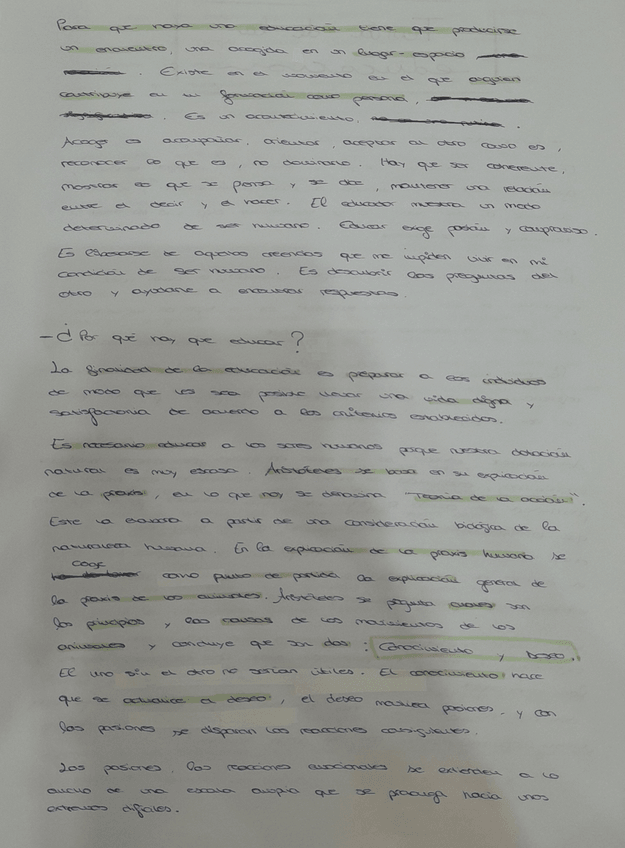 Para que haya una educación tiene que producirse
un encuentro, una acogida en un lugar-espacio
. Existe en el momento en el que alguien
contribuye en su formación como persona,
. Es un acontecimiento, .
Acoger es acompañar, orientar, aceptar al otro como es,
reconocer lo que es, no dominarlo. Hay que ser coherente,
mostrar lo que se piensa y se dice, mantener una relación
entre el decir y el hacer. El educador muestra un modo
determinado de ser humano. Educar exige pasión y compromiso.
Es liberarse de aquellas creencias que me impiden vivir en mi
condición de ser humano. Es descubrir las preguntas del
otro y ayudarle a encontrar respuestas.
- ¿Por qué hay que educar?
La finalidad de la educación es preparar a los individuos
de modo que les sea posible llevar una vida digna y
satisfactoria de acuerdo a los criterios establecidos.
Es necesario educar a los seres humanos porque nuestra dotación
natural es muy escasa. Aristóteles se basa en su explicación
de la praxis, en lo que hoy se denomina "Teoría de la acción".
Este la elabora a partir de una consideración biológica de la
naturaleza humana. En la explicación de la praxis humana se
coge como punto de partida la explicación general de
la praxis de los animales. Aristóteles se pregunta cuáles son
los principios y las causas de los movimientos de los
animales y concluye que son dos: Conocimiento y deseo.
El uno sin el otro no serían útiles. El conocimiento hace
que se active el deseo, el deseo pasiones, y con
las pasiones se disparan las reacciones consiguientes.
Las pasiones, las reacciones emocionales se extienden a lo
ancho de una escala amplia que se prolonga hacia unos
extremos difíciles.